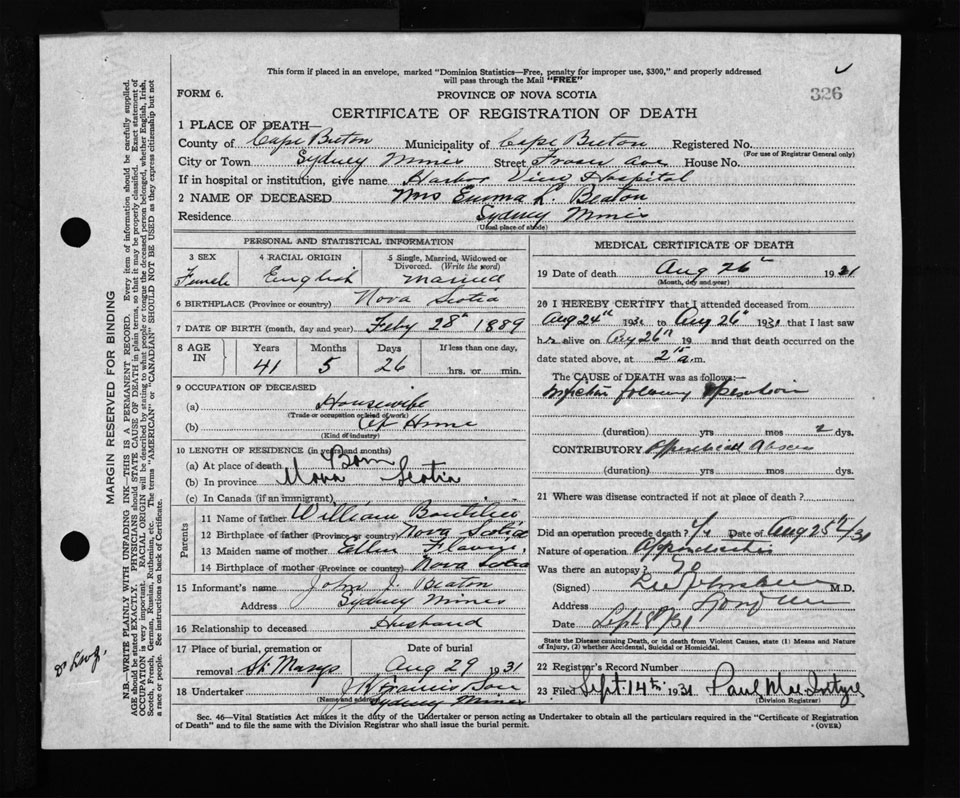 This form if placed in an envelope, marked "Dominion Statistics—Free, penalty for improper use, $300," and properly addressed
will pass through the Mail "FREE"
326
FORM 6.
PROVINCE OF NOVA SCOTIA
CERTIFICATE OF REGISTRATION OF DEATH
1 PLACE OF DEATH—
County of Cape Breton Municipality of Cape Breton Registered No.
(For use of Registrar General only)
City or Town Sydney Mines Street Fraser Ave House No.
If in hospital or institution, give name Harbor View Hospital
2 NAME OF DECEASED Mrs Emma L. Beaton
Residence Sydney Mines
(Usual place of abode)
PERSONAL AND STATISTICAL INFORMATION
3 SEX
Female
4 RACIAL ORIGIN
English
5 Single, Married, Widowed or
Divorced. (Write the word)
Married
6 BIRTHPLACE (Province or country) Nova Scotia
7 DATE OF BIRTH (month, day and year) Feby 28th 1889
8 AGE IN
Years Months Days If less than one day,
41 5 26 hrs. or min.
9 OCCUPATION OF DECEASED
(a) Housewife
(Trade or occupation or kind of work)
(b) At Home
(Kind of industry)
10 LENGTH OF RESIDENCE (in years and months)
(a) At place of death Born
(b) In province Nova Scotia
(c) In Canada (if an immigrant)
Parents
11 Name of father William Boutilier
12 Birthplace of father (Province or country) Nova Scotia
13 Maiden name of mother Ellen
14 Birthplace of mother (Province or country) Nova Scotia
15 Informant's name John J. Beaton
Address Sydney Mines
16 Relationship to deceased Husband
17 Place of burial, cremation or Date of burial
removal St. Marys Aug 29 1931
18 Undertaker Francis Son
(Name and address) Sydney Mines
MEDICAL CERTIFICATE OF DEATH
19 Date of death Aug 26th 1931
(Month, day and year)
20 I HEREBY CERTIFY that I attended deceased from
Aug 24th 1931 to Aug 26th 1931 that I last saw
her alive on Aug 26th 19 and that death occurred on the
date stated above, at 2 15 a.m.
The CAUSE of DEATH was as follows:—
following operation
(duration) yrs mos 2 dys.
CONTRIBUTORY Appendicial Abscess
(duration) yrs mos dys.
21 Where was disease contracted if not at place of death?
Did an operation precede death? Date of Aug 25th/31
Nature of operation Appendicitis
Was there an autopsy? No
(Signed) M.D.
Address
Date Sept
State the Disease causing Death, or in death from Violent Causes, state (1) Means and Nature
of Injury, (2) whether Accidental, Suicidal or Homicidal.
22 Registrar's Record Number
23 Filed Sept. 14th 1931 Paul MacIntyre
(Division Registrar)
Sec. 46—Vital Statistics Act makes it the duty of the Undertaker or person acting as Undertaker to obtain all the particulars required in the "Certificate of Registration
of Death" and to file the same with the Division Registrar who shall issue the burial permit. (OVER)
MARGIN RESERVED FOR BINDING
N.B.—WRITE PLAINLY WITH UNFADING INK—THIS IS A PERMANENT RECORD. Every item of information should be carefully supplied.
AGE should be stated EXACTLY. PHYSICIANS should STATE CAUSE OF DEATH in plain terms, so that it may be properly classified. Exact statement of
OCCUPATION is very important. RACIAL ORIGIN will be described by stating to what people or tongue the deceased person belonged, whether English, Irish,
Scotch, French, German, Russian, Ruthenian, etc. The terms "AMERICAN" or "CANADIAN" SHOULD NOT BE USED as they express citizenship but not
a race or people. See instructions on back of Certificate.